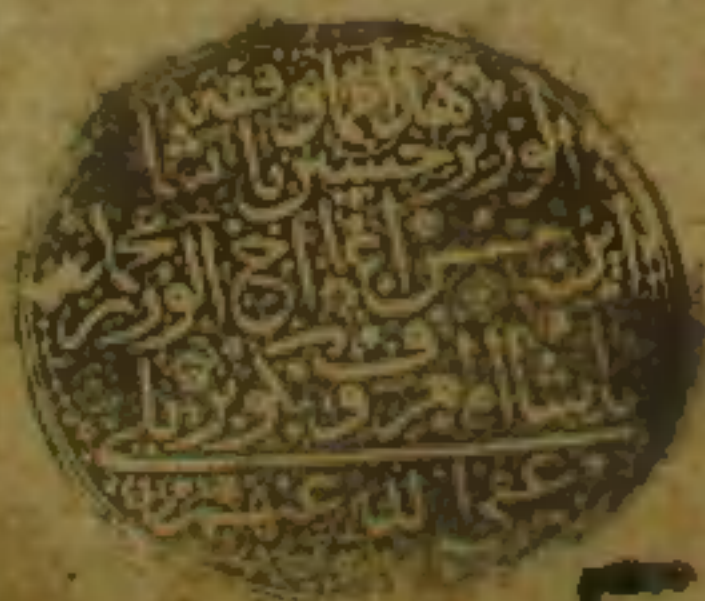 هذا مما وقفه
الوزير حسين باشا
ابن حسن اغا اخ الوزير
باشا المعروف بكوپرىلى
عفى الله عنهم